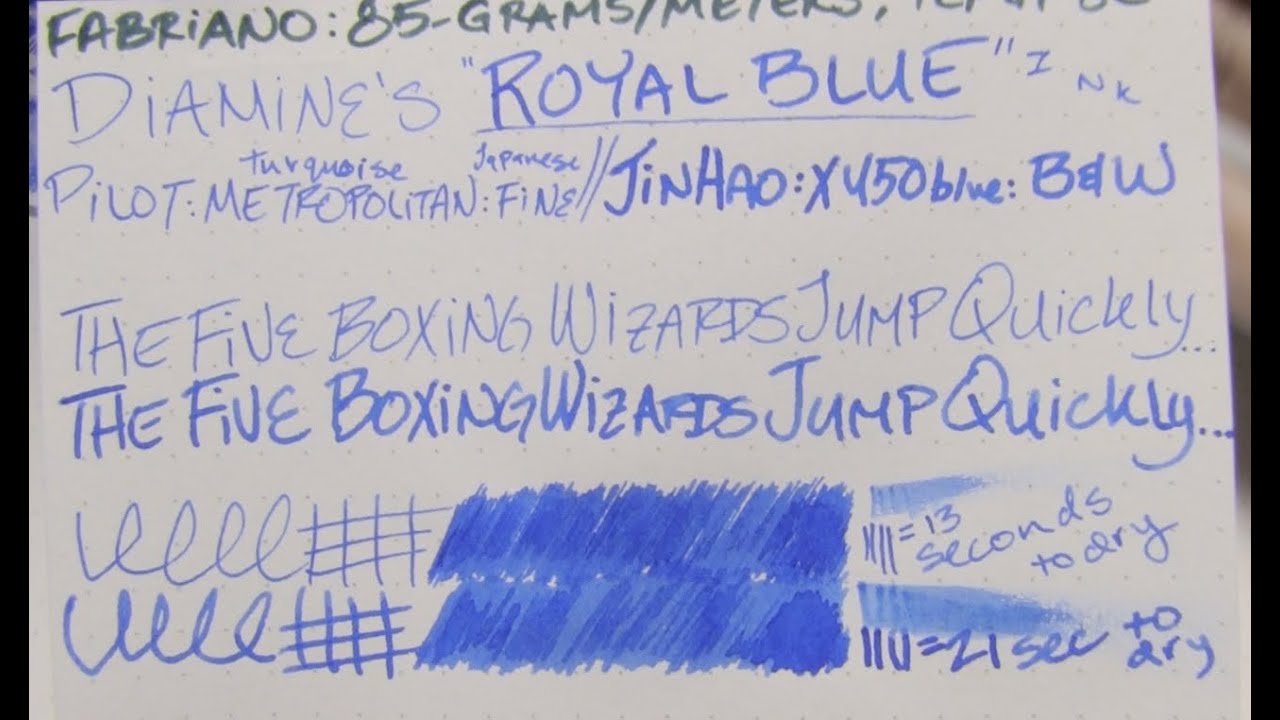 FABRiANO: 85-GRAMS/METERS,
DiAMiNE'S "ROYAL BLUE" INK
turquoise Japanese
PiLOT: METROPOLITAN: FiNE//JiNHAO: X450 blue: B&W
THE FiVE BOXiNG WiZARDS JUMP QuickLy...
THE FiVE BOXiNG WiZARDS JUMP QuickLy...
= 13 seconds to dry
= 21 sec to dry